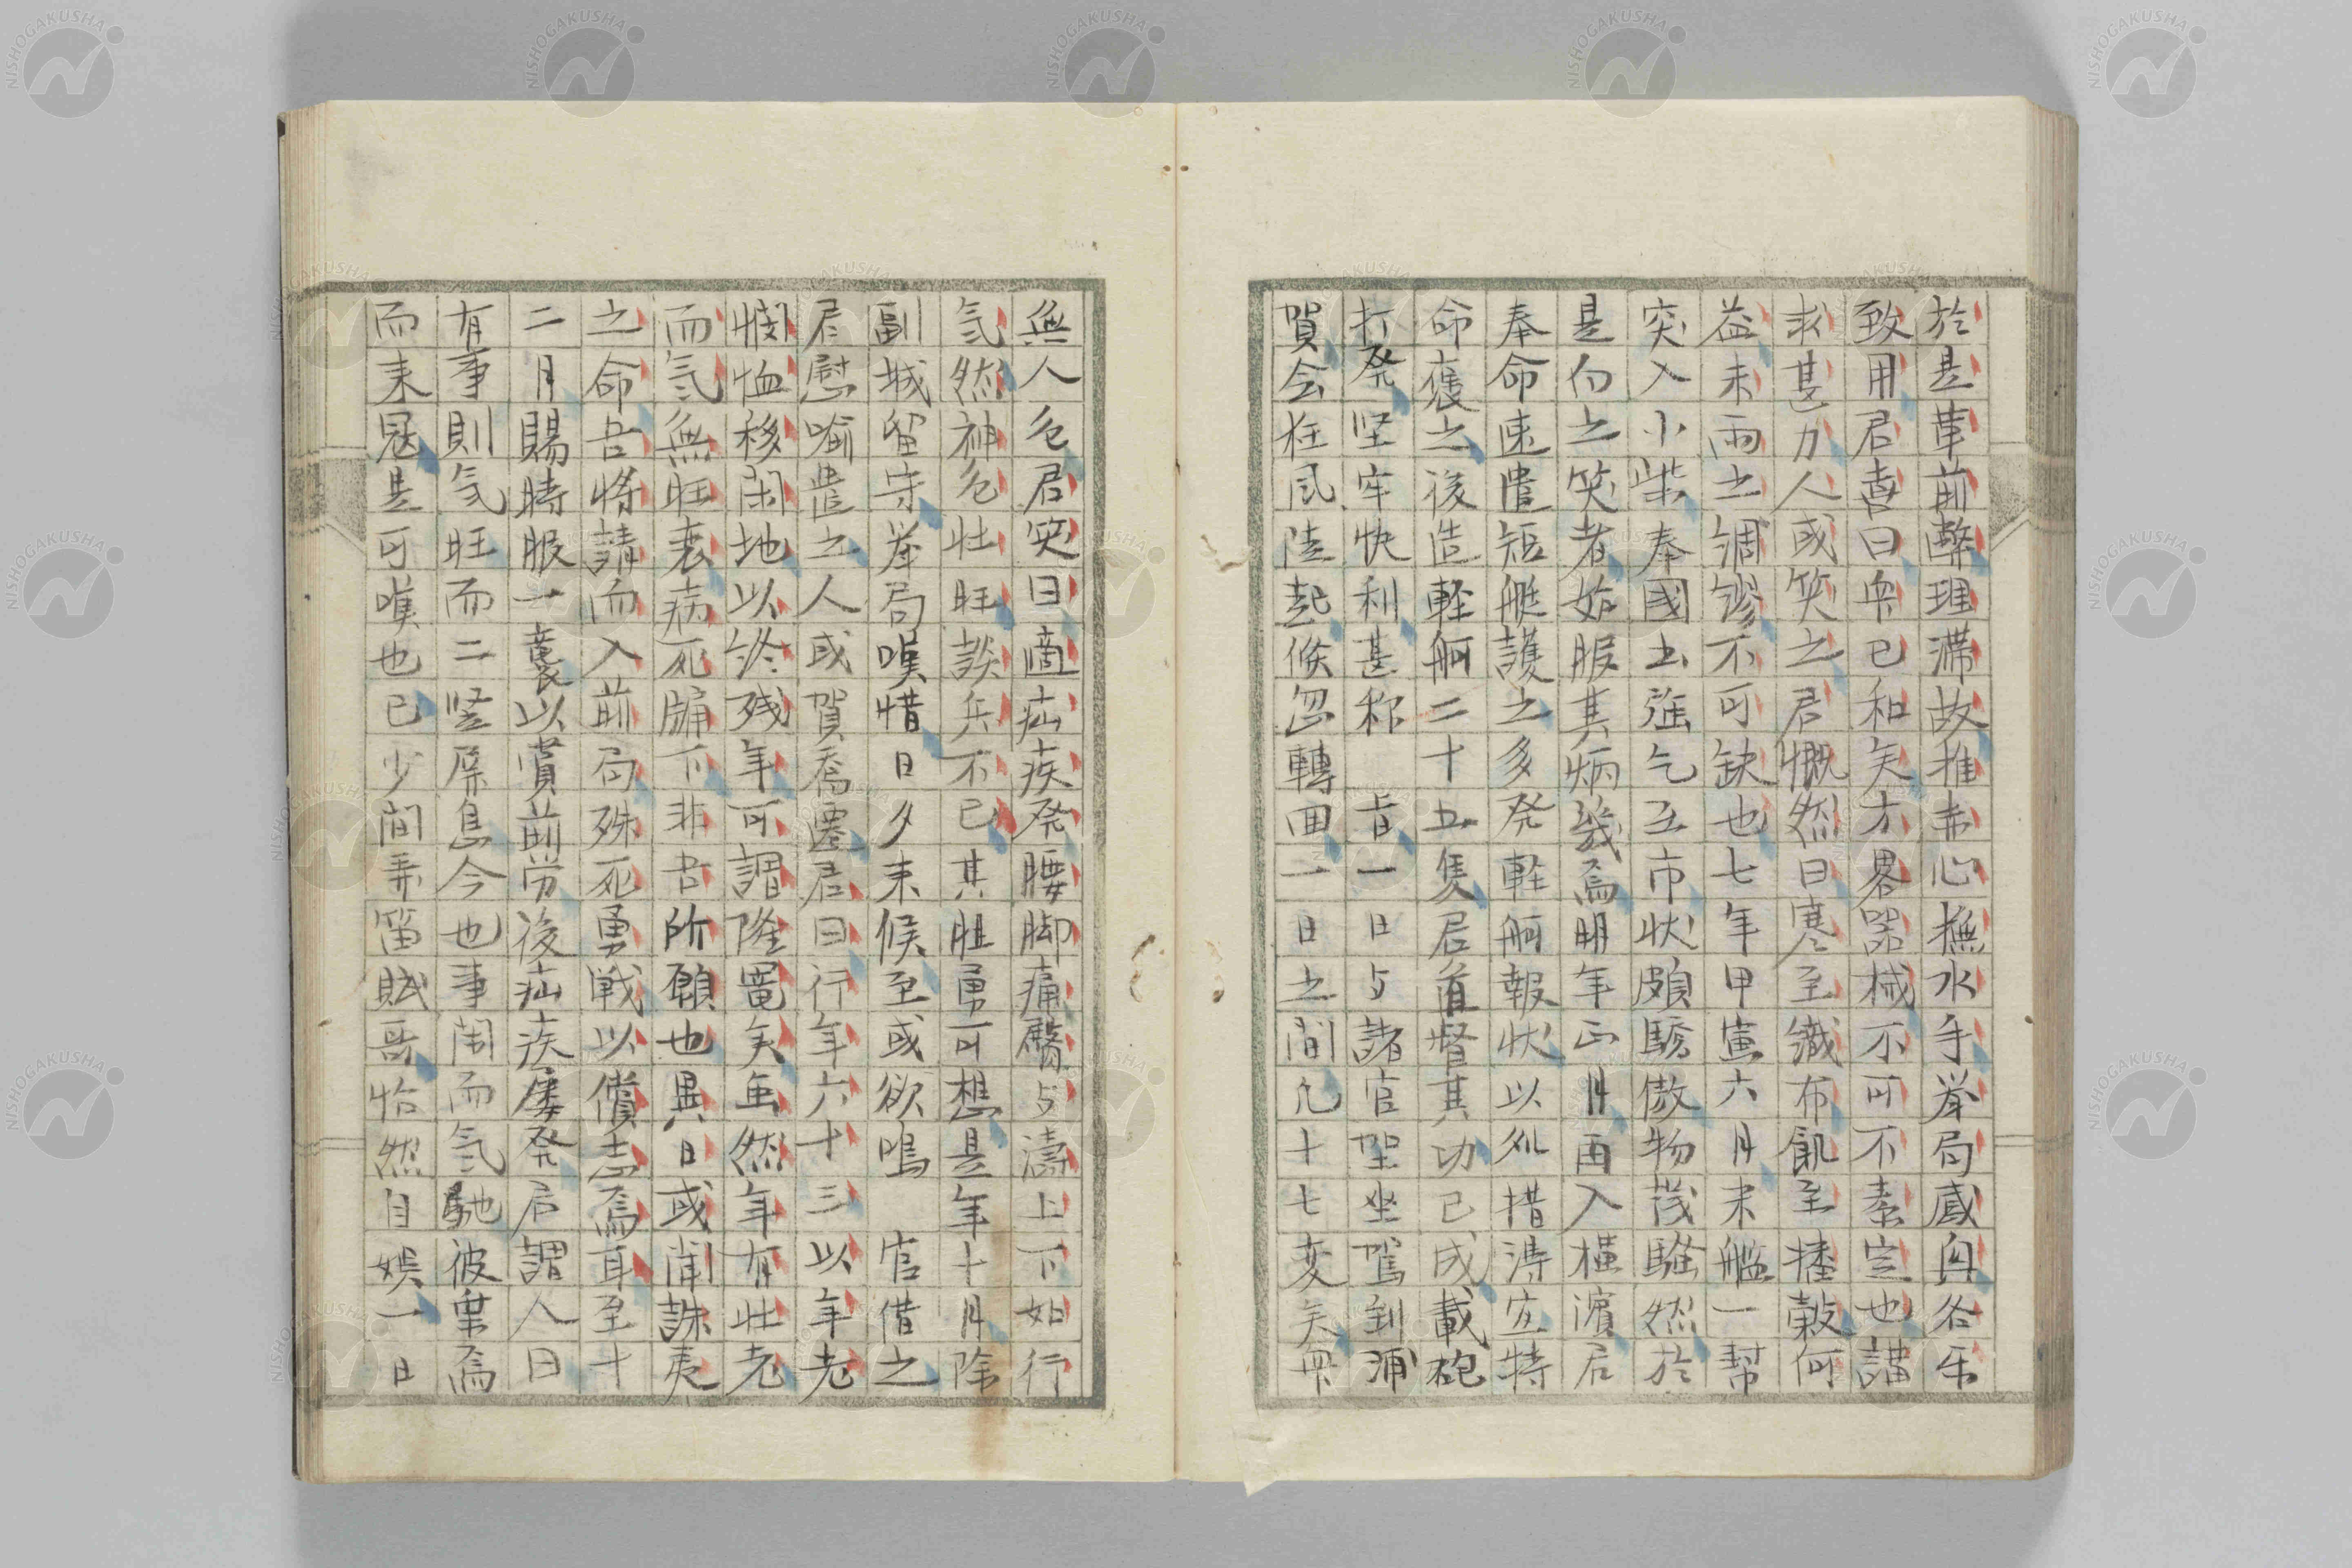 於是革前弊理滞故推赤心撫水手挙局感舟各乐
致用君喜曰舟已和矣方畧器械不可不素定也講
求甚力人或笑之君慨然曰寒至織布飢至播穀何
益未雨之綢繆不可缺也七年甲寅六月末艦一幇
突入小柴奉國書强乞互市状頗驕傲物議騒然於
是向之笑者始服其炳幾焉明年正月再入横濱君
奉命速遣短艇護之多発軽舸報状以処措得宜特
命褒之後造軽舸二十五隻君首督其功已成載砲
打発坚牢快利甚称 旨一日与諸官聖坐駕到浦
賀会狂風陡起倏忽轉囬一日之間凢十七変矣舟
無人色君笑曰適疝疾発腰脚痛臀与濤上下如行
氣然神色壮旺談兵不已其胆勇可想是年十月除
副城留守挙局嘆惜日夕来候至或欲鳴 官借之
君慰喻遣之人或賀喬遷君曰行年六十三以年老
憫恤移閑地以終残年可謂隆寵矣虽然年有壮老
而氣無旺衰病死牖下非吾所願也異日或聞誅夷
之命吾将請而入前局殊死勇戦以償志焉耳至十
二月賜時服一襲以賞前労後疝疾屡発君謂人曰
有事則氣旺而二竖屏息今也事閑而氣馳彼乗焉
而来冦是可嘆也已少間弄笛賦哥怡然自娯一日